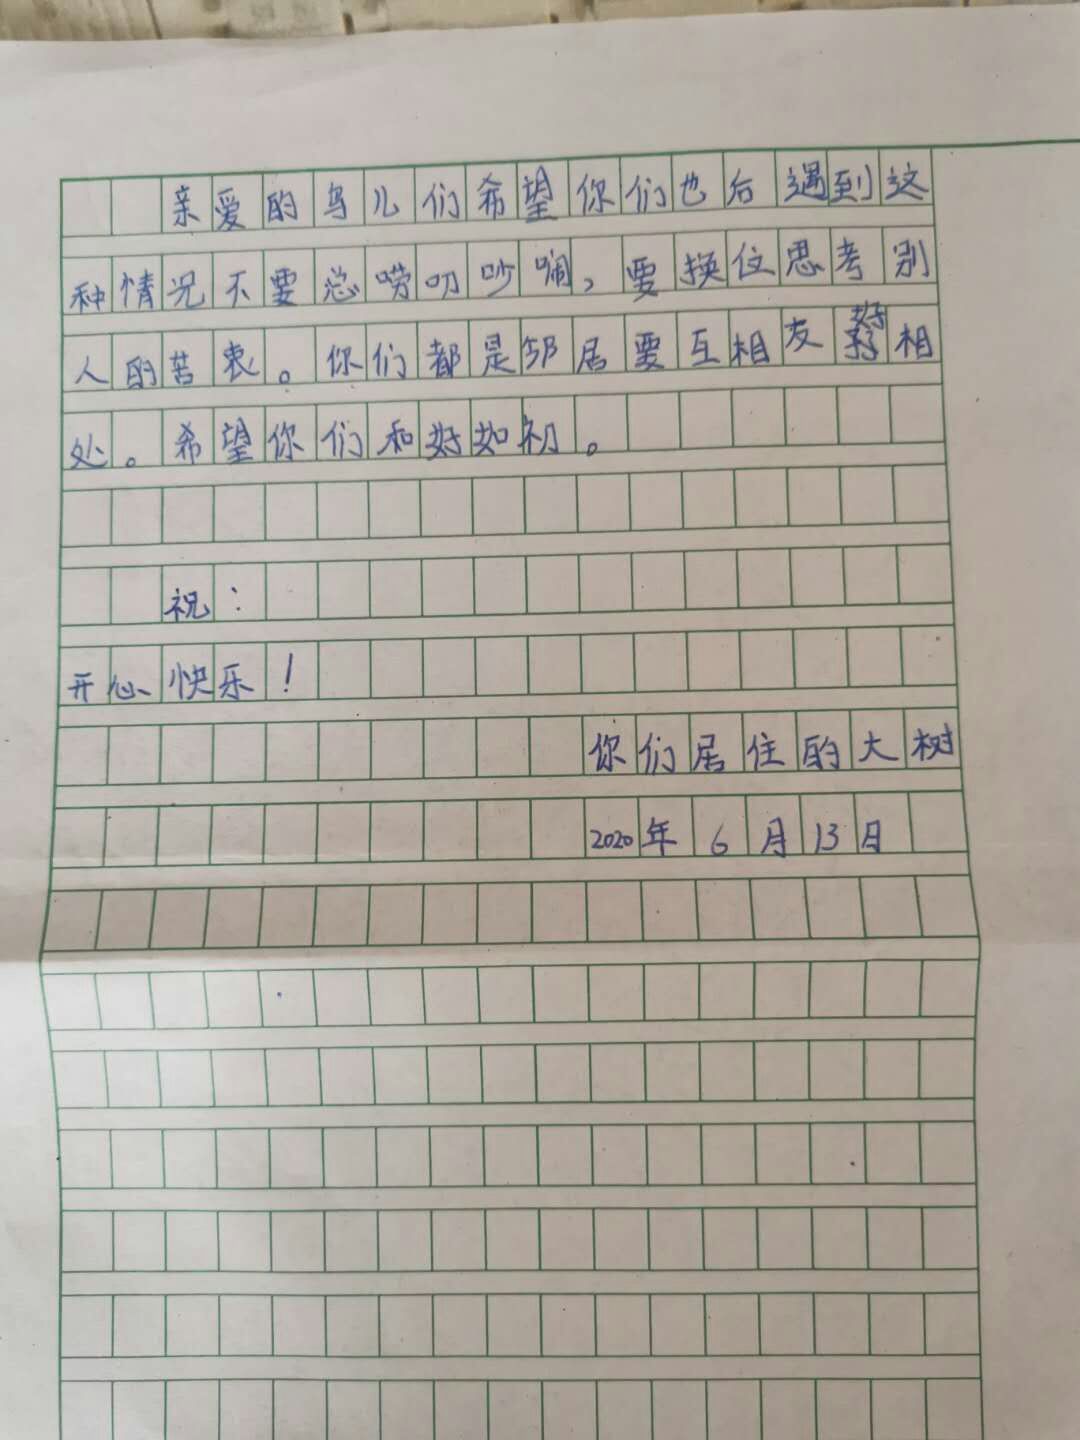 亲爱的鸟儿们希望你们也后遇到这
种情况不要总唠叨吵闹，要换位思考别
人的苦衷。你们都是邻居要互相友好相
处。希望你们和好如初。
祝：
开心快乐！
你们居住的大树
2020年6月13日